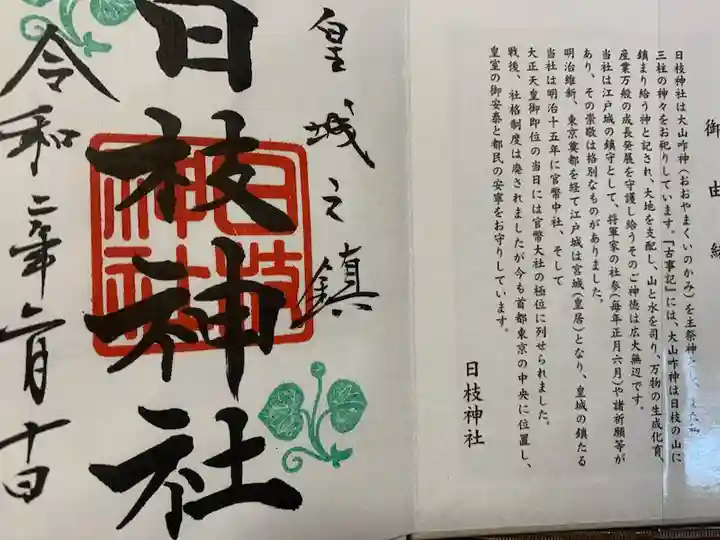 御由緒
日枝神社は大山咋神（おおやまくいのかみ）を主祭神と
三柱の神々をお祀りしています。『古事記』には、大山咋神は日枝の山に
鎮まり給う神と記され、大地を支配し、山と水を司り、万物の生成化育、
産業万般の成長発展を守護し給うそのご神徳は広大無辺です。
当社は江戸城の鎮守として、将軍家の社参（毎年正月六月）や諸祈願等が
あり、その崇敬は格別なものがありました。
明治維新、東京奠都を経て江戸城は宮城（皇居）となり、皇城の鎮たる
当社は明治十五年に官幣中社、そして
大正天皇御即位の当日には官幣大社の極位に列せられました。
戦後、社格制度は廃されましたが今も首都東京の中央に位置し、
皇室の御安泰と都民の安寧をお守りしています。
日枝神社
皇城之鎮
日枝神社
日枝
神社
令和二年六月十日